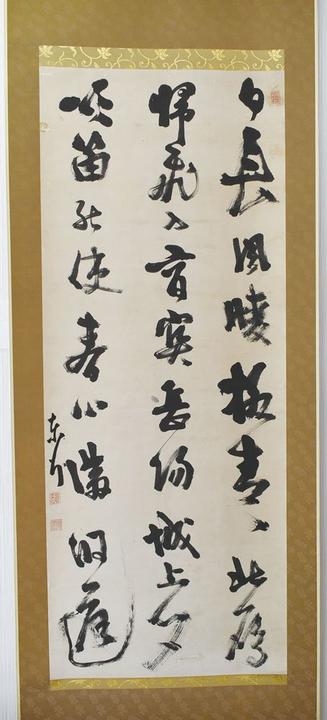 日長風暖柳青々北雁
帰飛入窅冥岳陽城上聞
吹笛能使春心満洞庭
東行